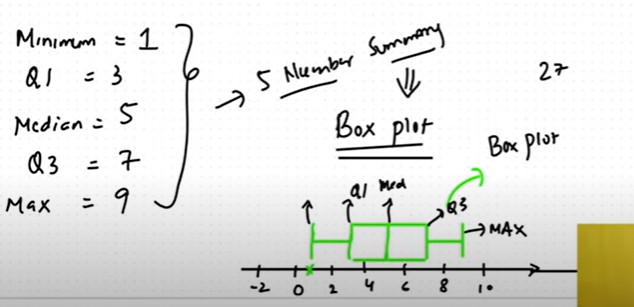 Minimum = 1
Q1 = 3
Median = 5
Q3 = 7
Max = 9
5 Number Summary
27
Box plot
Box plot
Q1 Med
Q3
MAX
-2 0 2 4 6 8 10